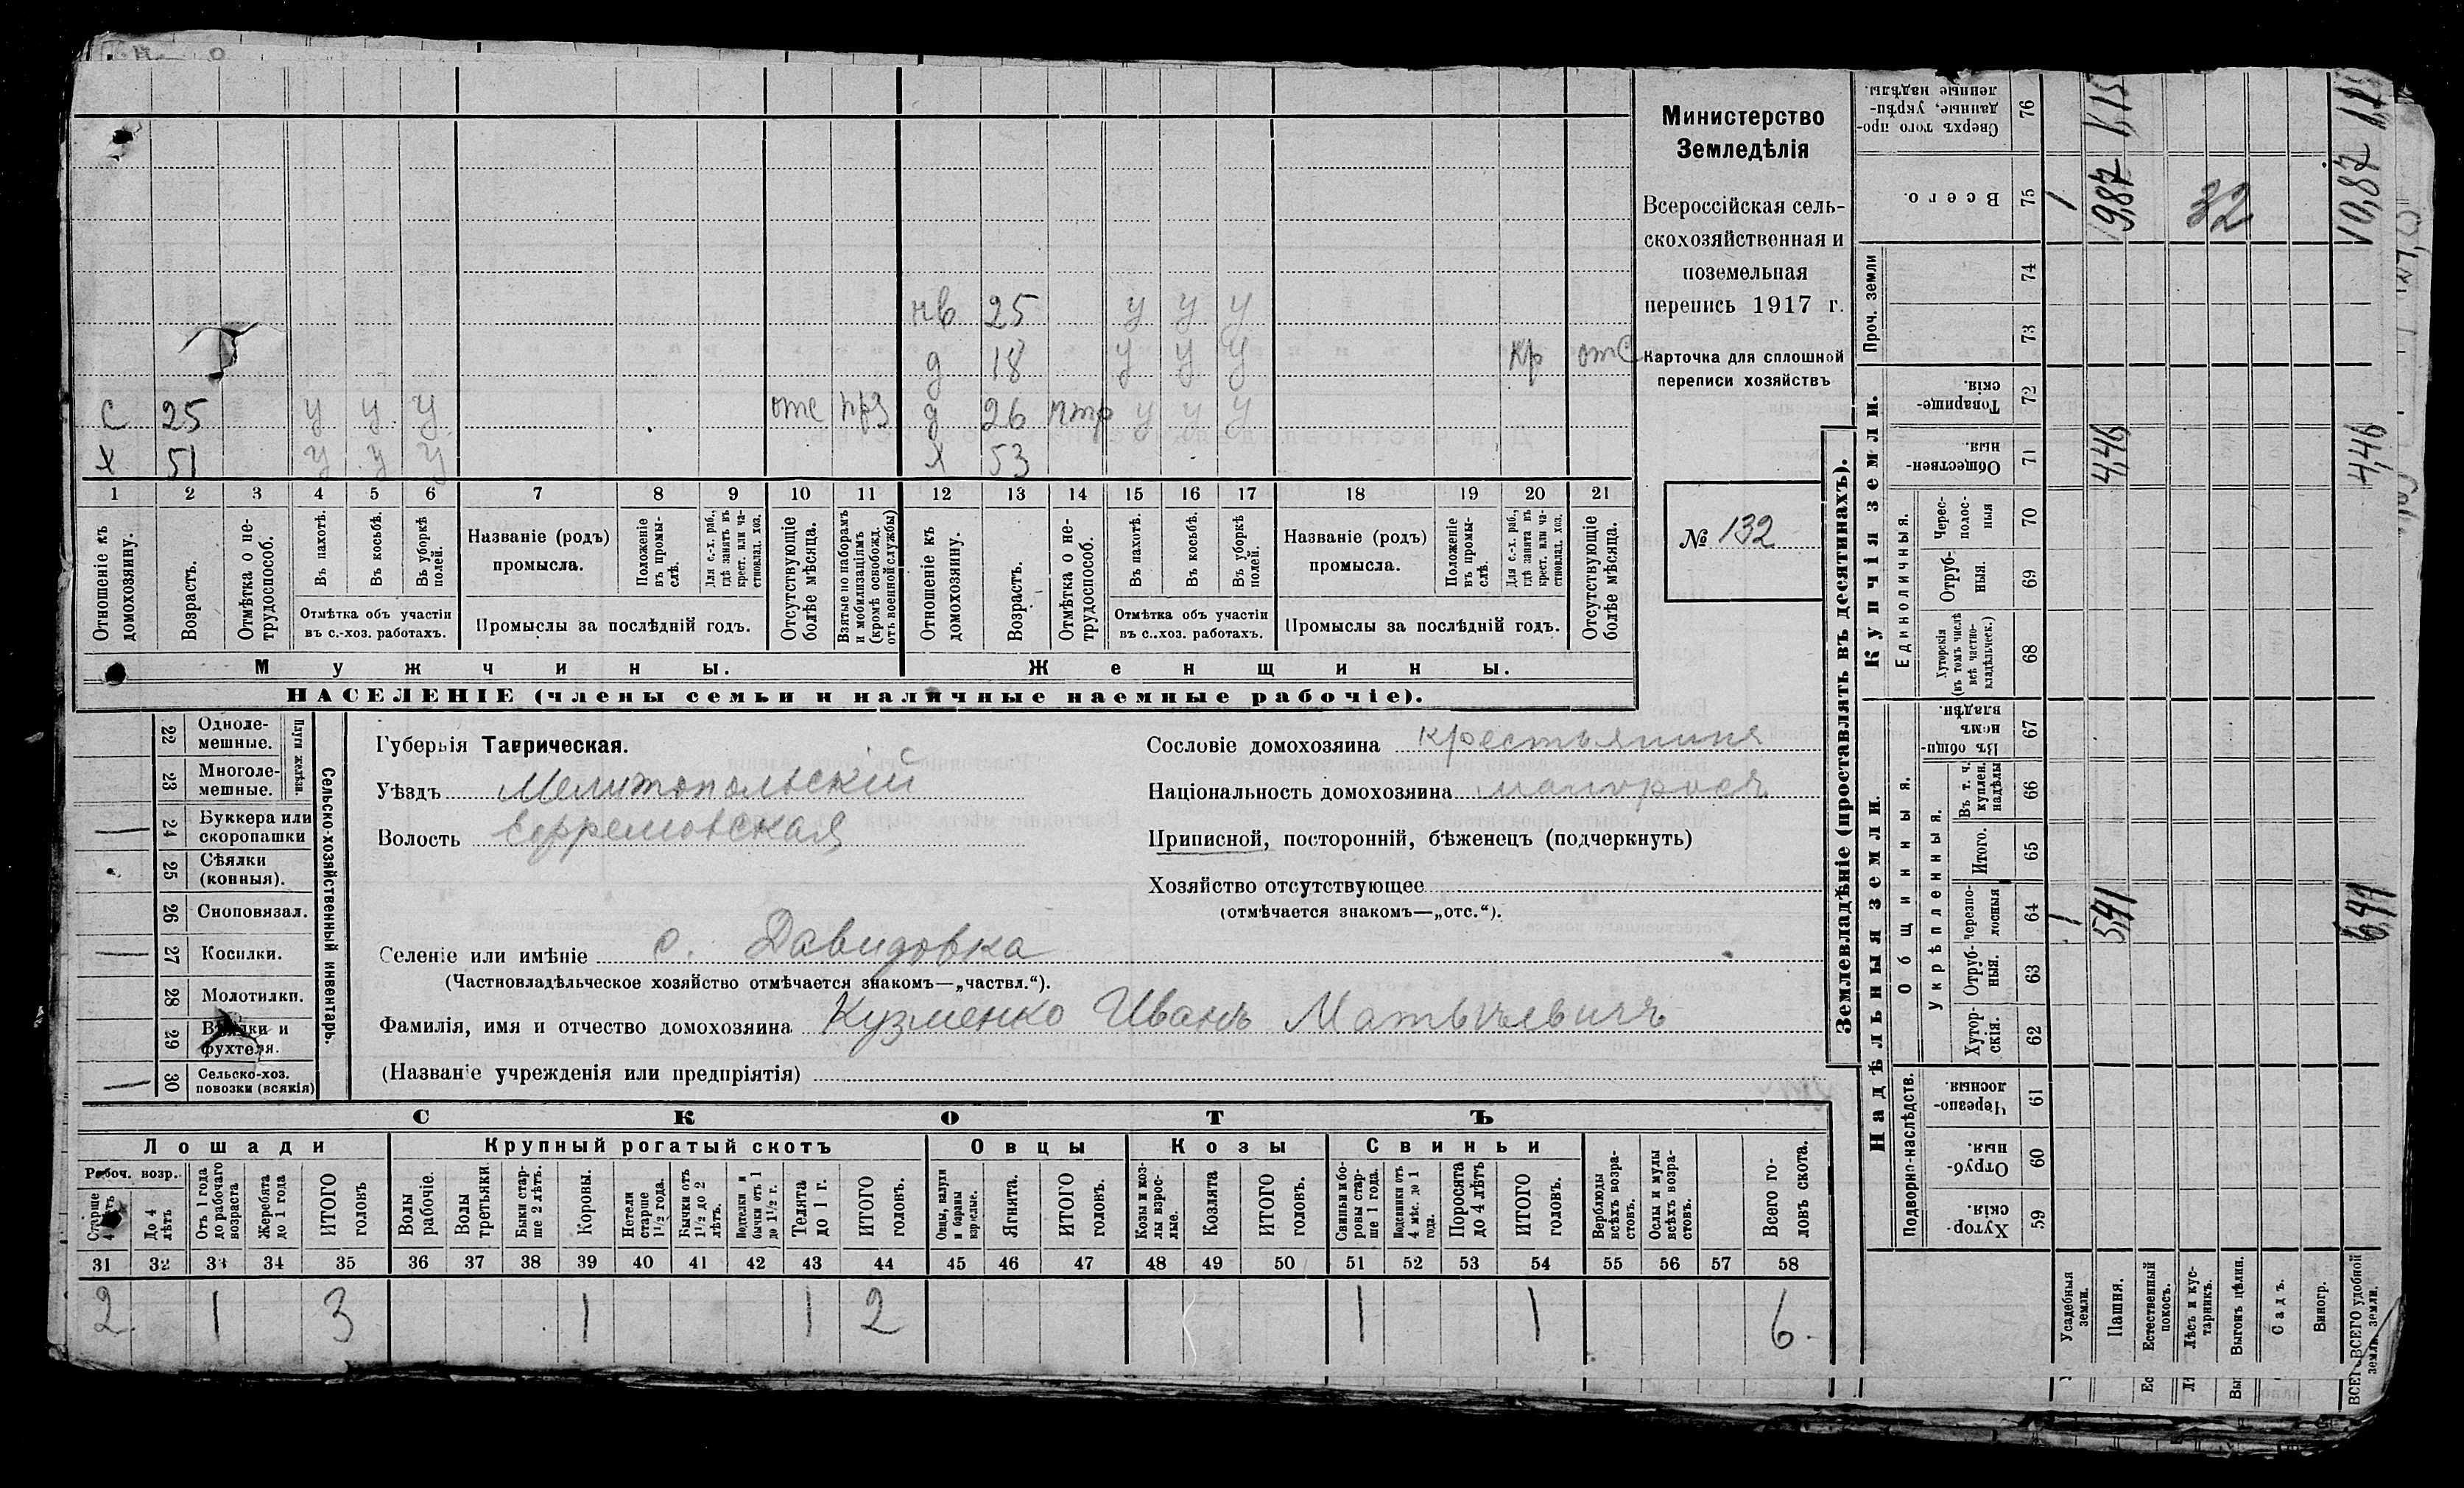 нв 25 у у у
д 18 у у у кр отс
С 25 у у у отс прз д 26 птр у у у
Х 51 у у у Х 53
1 2 3 4 5 6 7 8 9 10 11 12 13 14 15 16 17 18 19 20 21
Отношеніе къ домохозяину.
Возрастъ.
Отмѣтка о нетрудоспособ.
Въ пахотѣ.
Въ косьбѣ.
Въ уборкѣ полей.
Отмѣтка объ участіи
въ с.-хоз. работахъ.
Названіе (родъ)
промысла.
Положеніе въ промыслѣ.
Для с.-х. раб., гдѣ занятъ въ крест. или частновлад. хоз.
Промыслы за послѣдній годъ.
Отсутствующіе болѣе мѣсяца.
Взятые по наборамъ и мобилизаціямъ (кромѣ освобожд. отъ военной службы)
Отношеніе къ домохозяину.
Возрастъ.
Отмѣтка о нетрудоспособ.
Въ пахотѣ.
Въ косьбѣ.
Въ уборкѣ полей.
Отмѣтка объ участіи
въ с..хоз. работахъ.
Названіе (родъ)
промысла.
Положеніе въ промыслѣ.
Для с.-х. раб., гдѣ занята въ крест. или частновлад. хоз.
Промыслы за послѣдній годъ.
Отсутствующіе болѣе мѣсяца.
Мужчины. Женщины.
НАСЕЛЕНІЕ (члены семьи и наличные наемные рабочіе).
Министерство
Земледѣлія
Всероссійская сель-
скохозяйственная и
поземельная
перепись 1917 г.
Карточка для сплошной
переписи хозяйствъ
№ 132
22 Одноле-
мешные.
Плуги желѣзн.
23 Многоле-
мешные.
24 Буккера или
скоропашки
25 Сѣялки
(конныя).
26 Сноповязал.
27 Косилки.
28 Молотилки.
29 Вѣялки и
фухтеля.
30 Сельско-хоз.
повозки (всякія)
Сельско-хозяйственный инвентарь.
Губернія Таврическая.
Уѣздъ Мелитопольскій
Волость Ефремовская
Сословіе домохозяина крестьянинъ
Національность домохозяина малороссъ
Приписной, посторонній, бѣженецъ (подчеркнуть)
Хозяйство отсутствующее
(отмѣчается знакомъ—„отс.“).
Селеніе или имѣніе с. Давидовка
(Частновладѣльческое хозяйство отмѣчается знакомъ—„частвл.“).
Фамилія, имя и отчество домохозяина Кузменко Иванъ Матвѣевичъ
(Названіе учрежденія или предпріятія)
СКОТЪ
Лошади Крупный рогатый скотъ Овцы Козы Свиньи
Рабоч. возр.
Старше 4 лѣтъ
До 4 лѣтъ
Отъ 1 года до рабочаго возраста
Жеребята до 1 года
ИТОГО головъ
Волы рабочіе.
Волы третьяки.
Быки старше 2 лѣтъ.
Коровы.
Нетели старше 1½ года.
Бычки отъ 1½ до 2 лѣтъ.
Подтелки и бычки отъ 1 до 1½ г.
Телята до 1 г.
ИТОГО головъ.
Овцы, валухи и бараны взрослые.
Ягнята.
ИТОГО головъ.
Козы и козлы взрослые.
Козлята
ИТОГО головъ.
Свиньи и боровы старше 1 года.
Подсвинки отъ 4 мѣс. до 1 года.
Поросята до 4 лѣтъ
ИТОГО головъ.
Верблюды всѣхъ возрастовъ.
Ослы и мулы всѣхъ возрастовъ.
Всего головъ скота.
31 32 33 34 35 36 37 38 39 40 41 42 43 44 45 46 47 48 49 50 51 52 53 54 55 56 57 58
2 1 3 1 1 2 1 1 6
Землевладѣніе (проставлять въ десятинахъ).
Купчія земли.
Надѣльныя земли.
Сверхъ того проданные, укрѣпленные надѣлы. 76 1,15
Всего. 75 1 9,87 32 10,87
Проч. земли 74
73
Товарищескія. 72
Общественныя. 71 4,46 4,46
Единоличныя.
Черес-полосныя 70
Отрубныя. 69
Хуторскія (въ томъ числѣ всѣ частновладѣльческ.) 68
Общинныя.
Въ общинномъ владѣн. 67
Укрѣпленныя.
Въ т. ч. куплен. надѣлы 66
Итого. 65
Черезполосныя 64 1 5,41 6,41
Отрубныя. 63
Хуторскія. 62
Подворно-наслѣдств.
Черезполосныя. 61
Отрубныя. 60
Хуторскія. 59
Усадебныя земли.
Пашня.
Естественный покосъ.
Лѣсъ и кустарникъ.
Выгонъ цѣлин.
Садъ.
Виногр.
ВСЕГО удобной земли.